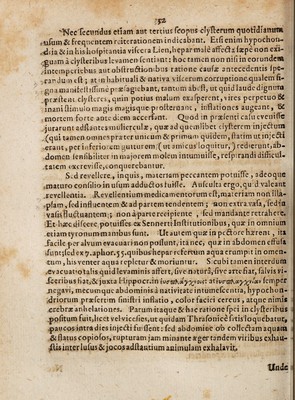 52
Nec secundus etiam aut tertius scopus clysterum quotidianum
usum & frequentem reiterationem indicabant. Etsi enim hypochon-
dria & in his hospitantia viscera Lien, hepar malè affecta sæpè non exi-
guum à clysteribus levamen sentiant: hoc tamen non nisi in eorundem
intemperiebus aut obstructionibus ratione causæ antecedentis spe-
randum est; at in habituali & earum viscerum corruptione qualem si-
gna manifestissimè præsagiebant, tantum abest, ut quid laude dignum
præstent clysteres, quin potius malum exasperent, vires perpetuo &
inani stimulo magis magisque prosternant, inflationes augeant, &
mortem forte ante diem accersant. Quod in præsenti casu evenisse
jurarunt adstantes mulierculæ, quæ ad quemlibet clysterem injectum
(qui tamen omnes præter unicum & primum quidem, statim ut injecti
erant, per inferiorem gutturem (ut amicus loquitur,) redierunt, ab-
domen sensibiliter in majorem molem intumuisse, respirandi difficul-
tatem excrevisse, conquerebantur.
Sed revellere, inquis, materiam peccantem potuisse, adeoque
maturo consilio in usum adductos huisse. Ausculta ergo, quid valeant
revellentia. Revellenti um medicamentorum est, materiam non illa-
psam, sed influentem & ad partem tendentem; non extra vasa, sed in
vasis fluctuantem; non à parte recipiente, sed mandante retrahere.
Et hæc discere potuisses ex Senneri Institutionibus, quæ in omnium
etiam tyronum manibus sunt. Ut autem quæ in pectore hærent, ita
facile per alvum evacuari non possunt, ita nec, quæ in abdomen effusa
sunt; sed ex 7. aphor. 55. quibus hepar refertum aqua erumpit in omen-
tum, his venter aqua repletur & moriuntur. Scubi tamen interdum
evacuatio talis quid levaminis affert, sive naturâ, sive arte fiat, salvis vi-
sceribus fiat, & juxta Hippocratim semper
negavi, mecumque abdominis à nativitate intumescentia, hypochon-
driorum præsertim sinistri inflatio, color faciei cereus, atque nimis
crebræ anhelationes. Parum itaque & hac ratione spei in clysteribus
positum fuit, licet vel vicesies, ut quidam Thrasonicè satis loquebatur,
paucos intra dies injecti fuissent: sed abdomine ob collectam aquam
& flatus copiosos, rupturam jam minante æger tandem viribus exhau-
stis inter lusus & jocos adstantium animulam exhalavit.
Unde